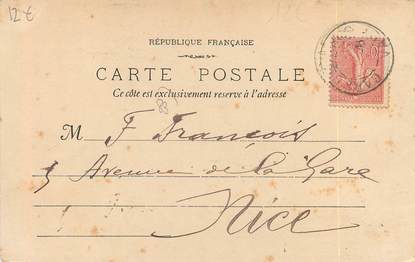 12 €
RÉPUBLIQUE FRANÇAISE
CARTE POSTALE
Ce côté est exclusivement reservé à l'adresse
M F François
5 Avenue de la Gare
Nice